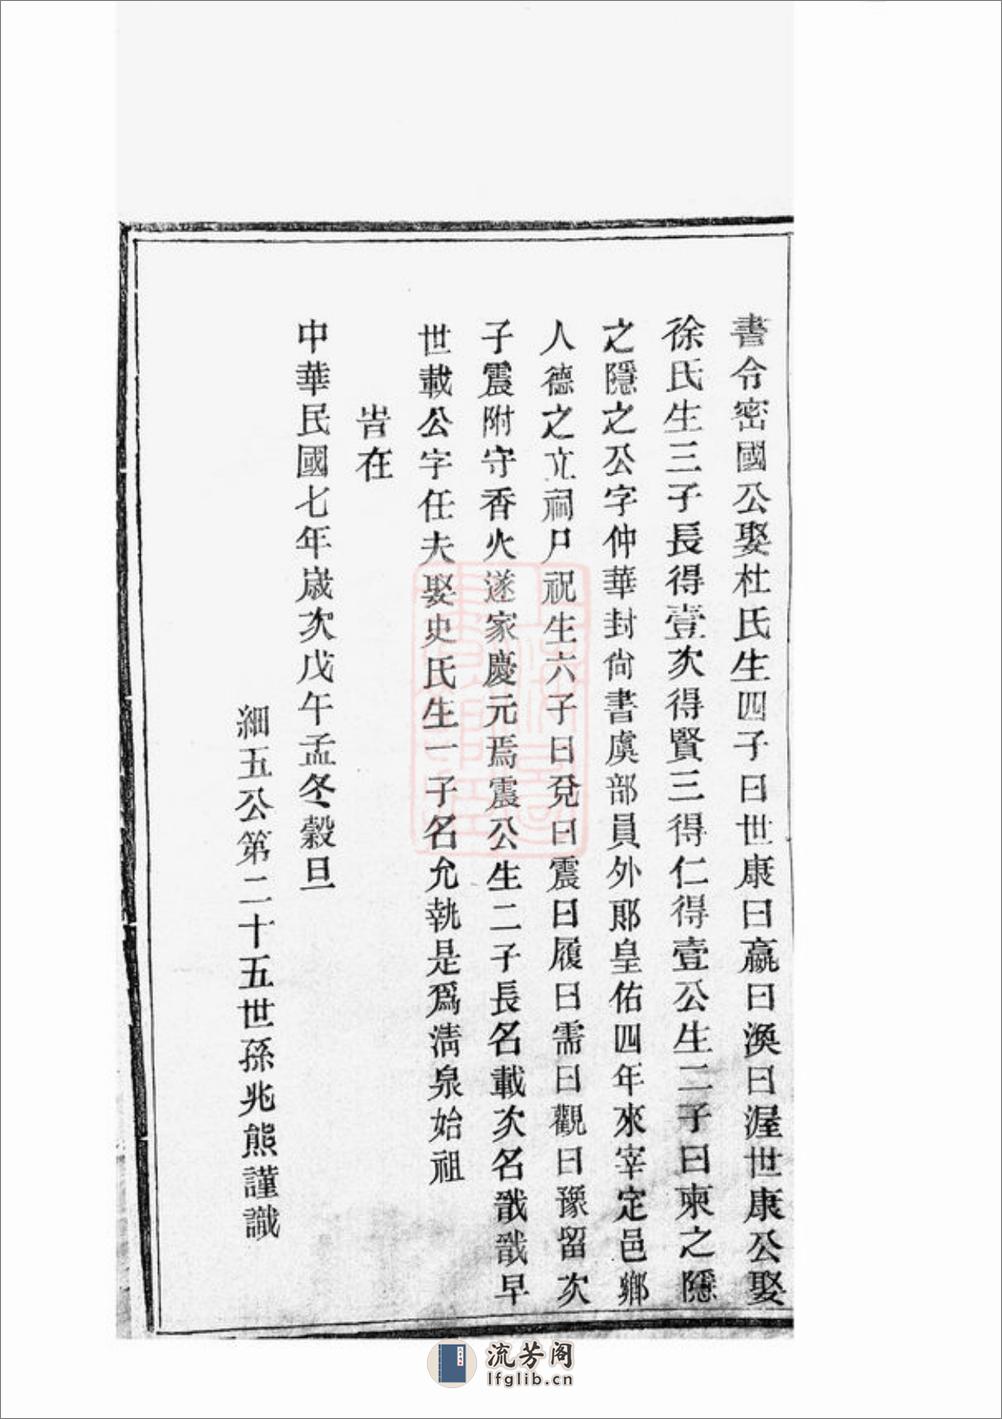 書令密國公娶杜氏生四子曰世康曰嬴曰渙曰渥世康公娶
徐氏生三子長得壹次得賢三得仁得壹公生二子曰東之隱
之隱之公字仲華封尙書虞部員外郞皇佑四年來宰定邑鄉
人德之立祠尸祝生六子曰兌曰震曰履曰需曰觀曰豫留次
子震附守香火遂家慶元焉震公生二子長名載次名戩戩早
世載公字任夫娶史氏生一子名允執是爲淸泉始祖
旹在
中華民國七年歲次戊午孟冬穀旦
細五公第二十五世孫兆熊謹識
流芳阁
lfglib.cn